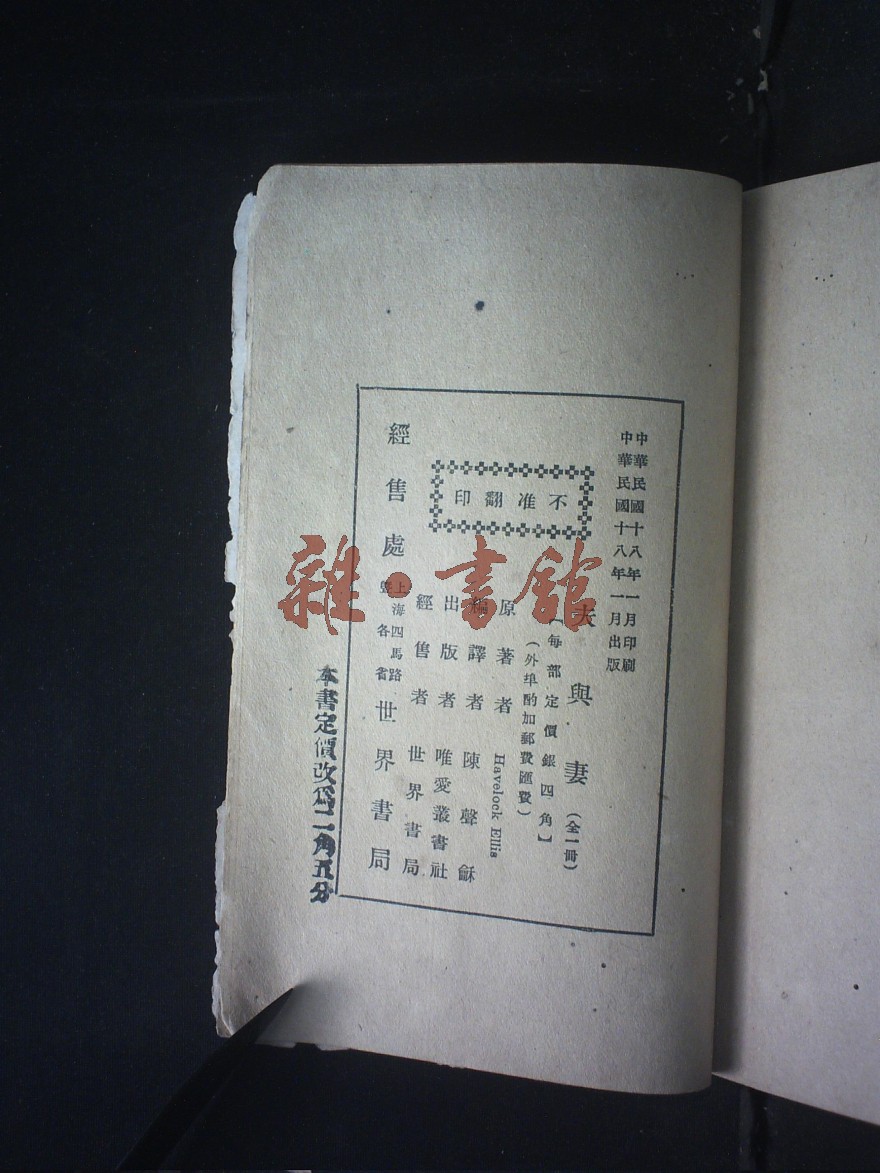 中華民國十八年一月印刷
中華民國十八年一月出版
夫與妻(全一冊)
【每部定價銀四角】
(外埠酌加郵費匯費)
原著者 Havelock Ellis
編譯者 陳聲龢
出版者 唯愛叢書社
經售者 世界書局
不准翻印
經售處 上海四馬路暨各省 世界書局
本書定價改為二角五分
雜·書館